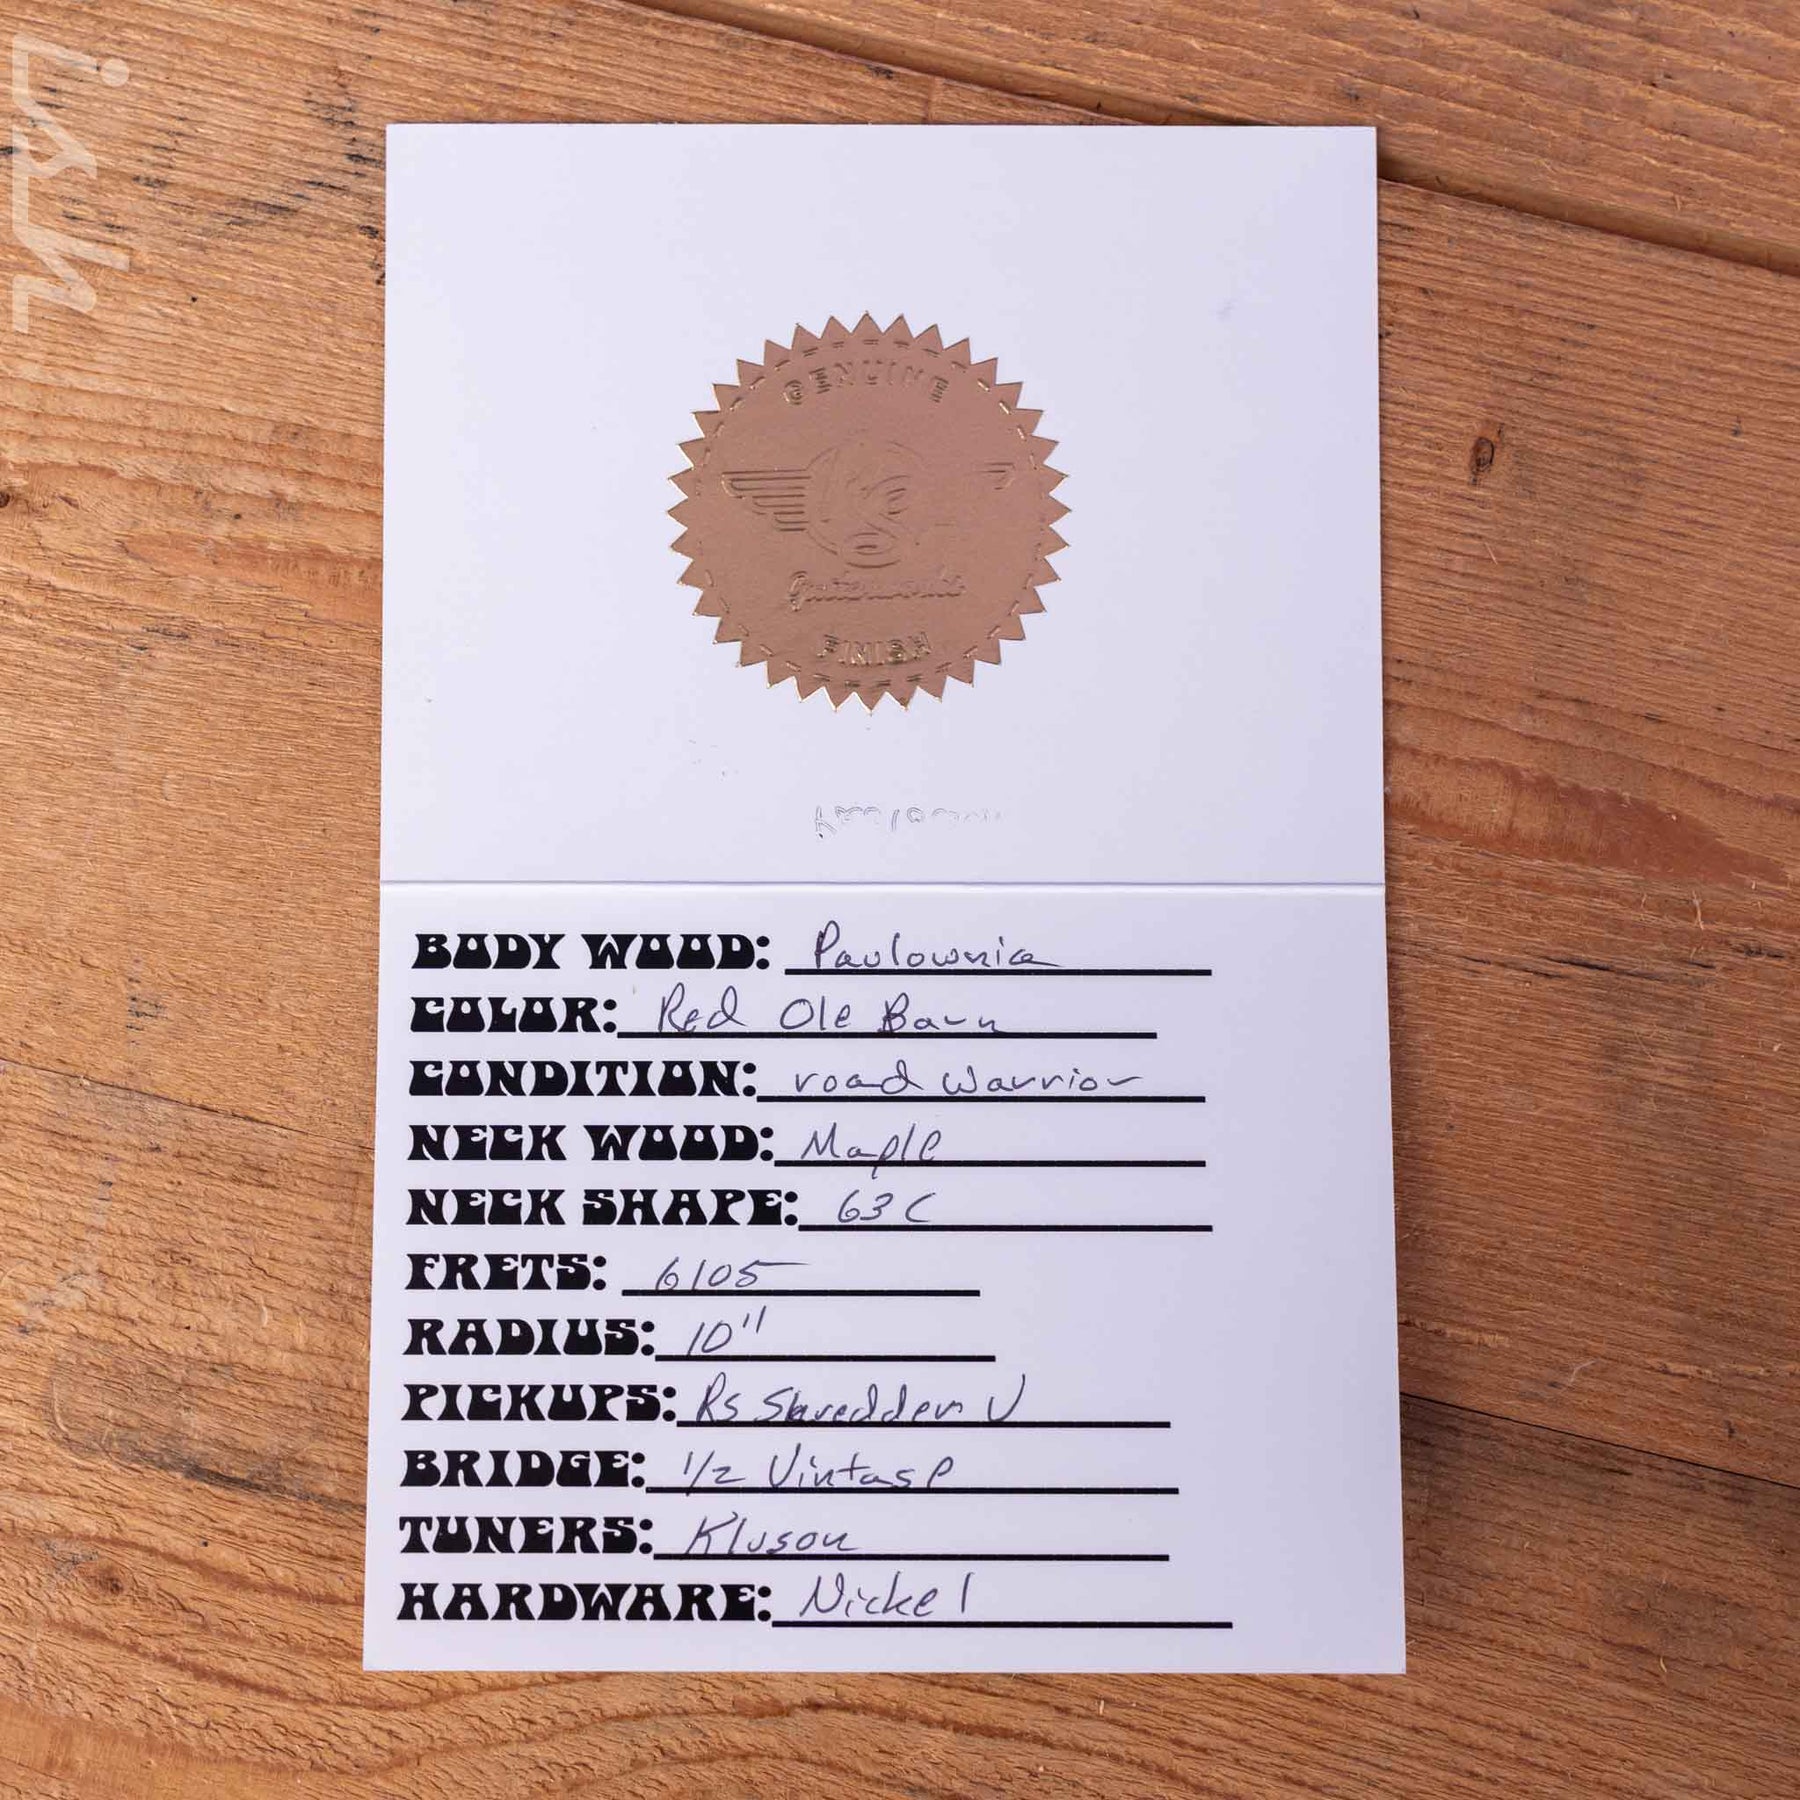 ish
GENUINE
RS
Guitarworks
FINISH
BODY WOOD: Paulownia
COLOR: Red Ole Barn
CONDITION: road warrior
NECK WOOD: Maple
NECK SHAPE: 63 C
FRETS: 6105
RADIUS: 10"
PICKUPS: Rs Shredder V
BRIDGE: 1/2 Vintage
TUNERS: Kluson
HARDWARE: Nickel